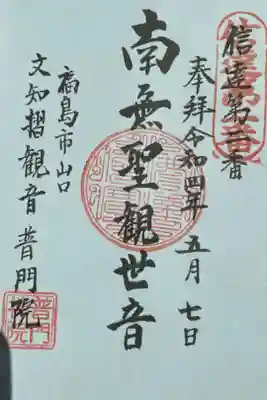 信達第二番
奉拝令和四年五月七日
南無聖観世音
福島市山口
文知摺観音普門院